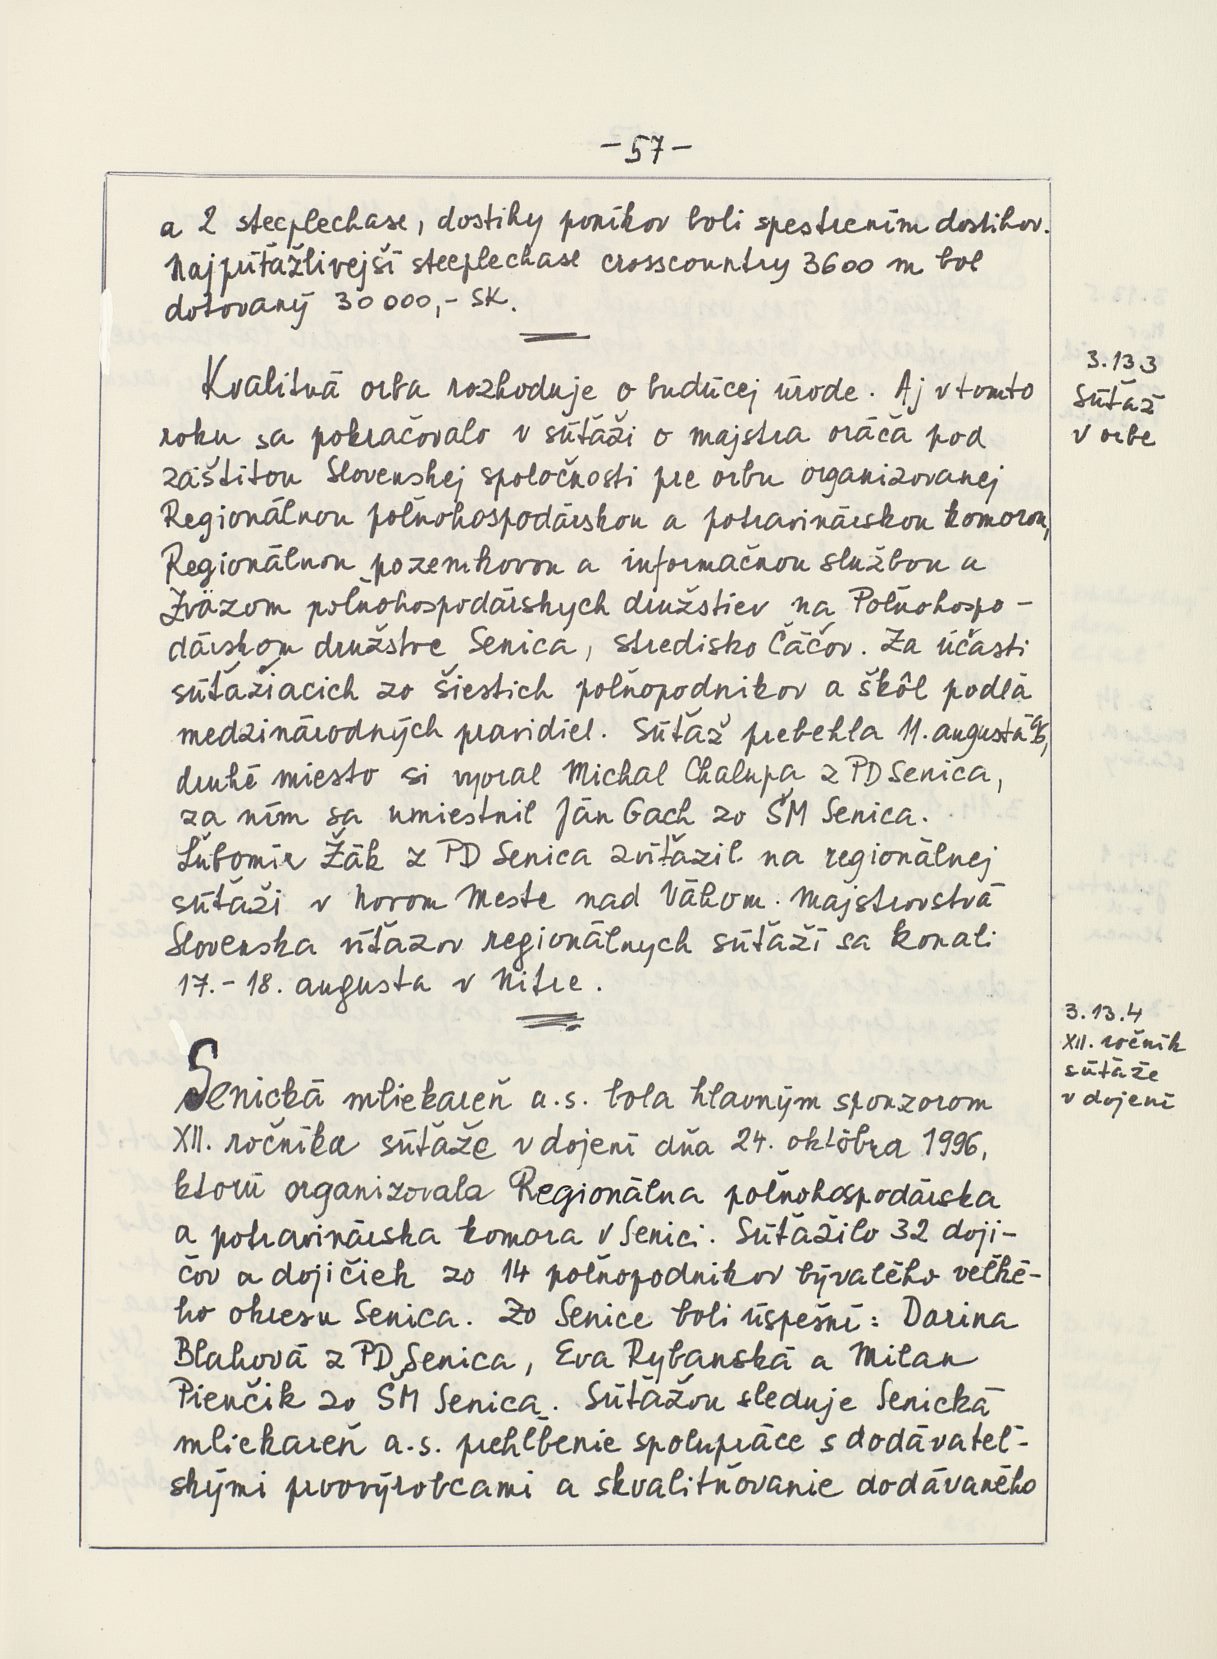 - 57 -
a 2 steeplechase, dostihy poníkov boli spestrením dostihov.
Najpríťažlivejší steeplechase crosscountry 3600 m bol
dotovaný 30 000,- SK.
Kvalitná orba rozhoduje o budúcej úrode. Aj v tomto
roku sa pokračovalo v súťaži o majstra oráča pod
záštitou Slovenskej spoločnosti pre orbu organizovanej
Regionálnou poľnohospodárskou a potravinárskou komorou,
Regionálnou pozemkovou a informačnou službou a
Zväzom poľnohospodárskych družstiev na Poľnohospo-
dárskom družstve Senica, stredisko Čáčov. Za účasti
súťažiacich zo šiestich poľnopodnikov a škôl podľa
medzinárodných pravidiel. Súťaž prebehla 11. augusta 96,
druhé miesto si vyoral Michal Chalupa z PD Senica,
za ním sa umiestnil Ján Gach zo ŠM Senica.
Ľubomír Žák z PD Senica zvíťazil na regionálnej
súťaži v Novom Meste nad Váhom. Majstrovstvá
Slovenska víťazov regionálnych súťaží sa konali
17.- 18. augusta v Nitre.
3.13.3
Súťaž
v orbe
Senická mliekareň a.s. bola hlavným sponzorom
XII. ročníka súťaže v dojení dňa 24. októbra 1996,
ktorú organizovala Regionálna poľnohospodárska
a potravinárska komora v Senici. Súťažilo 32 doji-
čov a dojičiek zo 14 poľnopodnikov bývalého veľké-
ho okresu Senica. Zo Senice boli úspešní: Darina
Blahová z PD Senica, Eva Rybanská a Milan
Pienčik zo ŠM Senica. Súťažou sleduje Senická
mliekareň a.s. prehĺbenie spolupráce s dodávateľ-
skými prvovýrobcami a skvalitňovanie dodávaného
3.13.4
XII. ročník
súťaže
v dojení